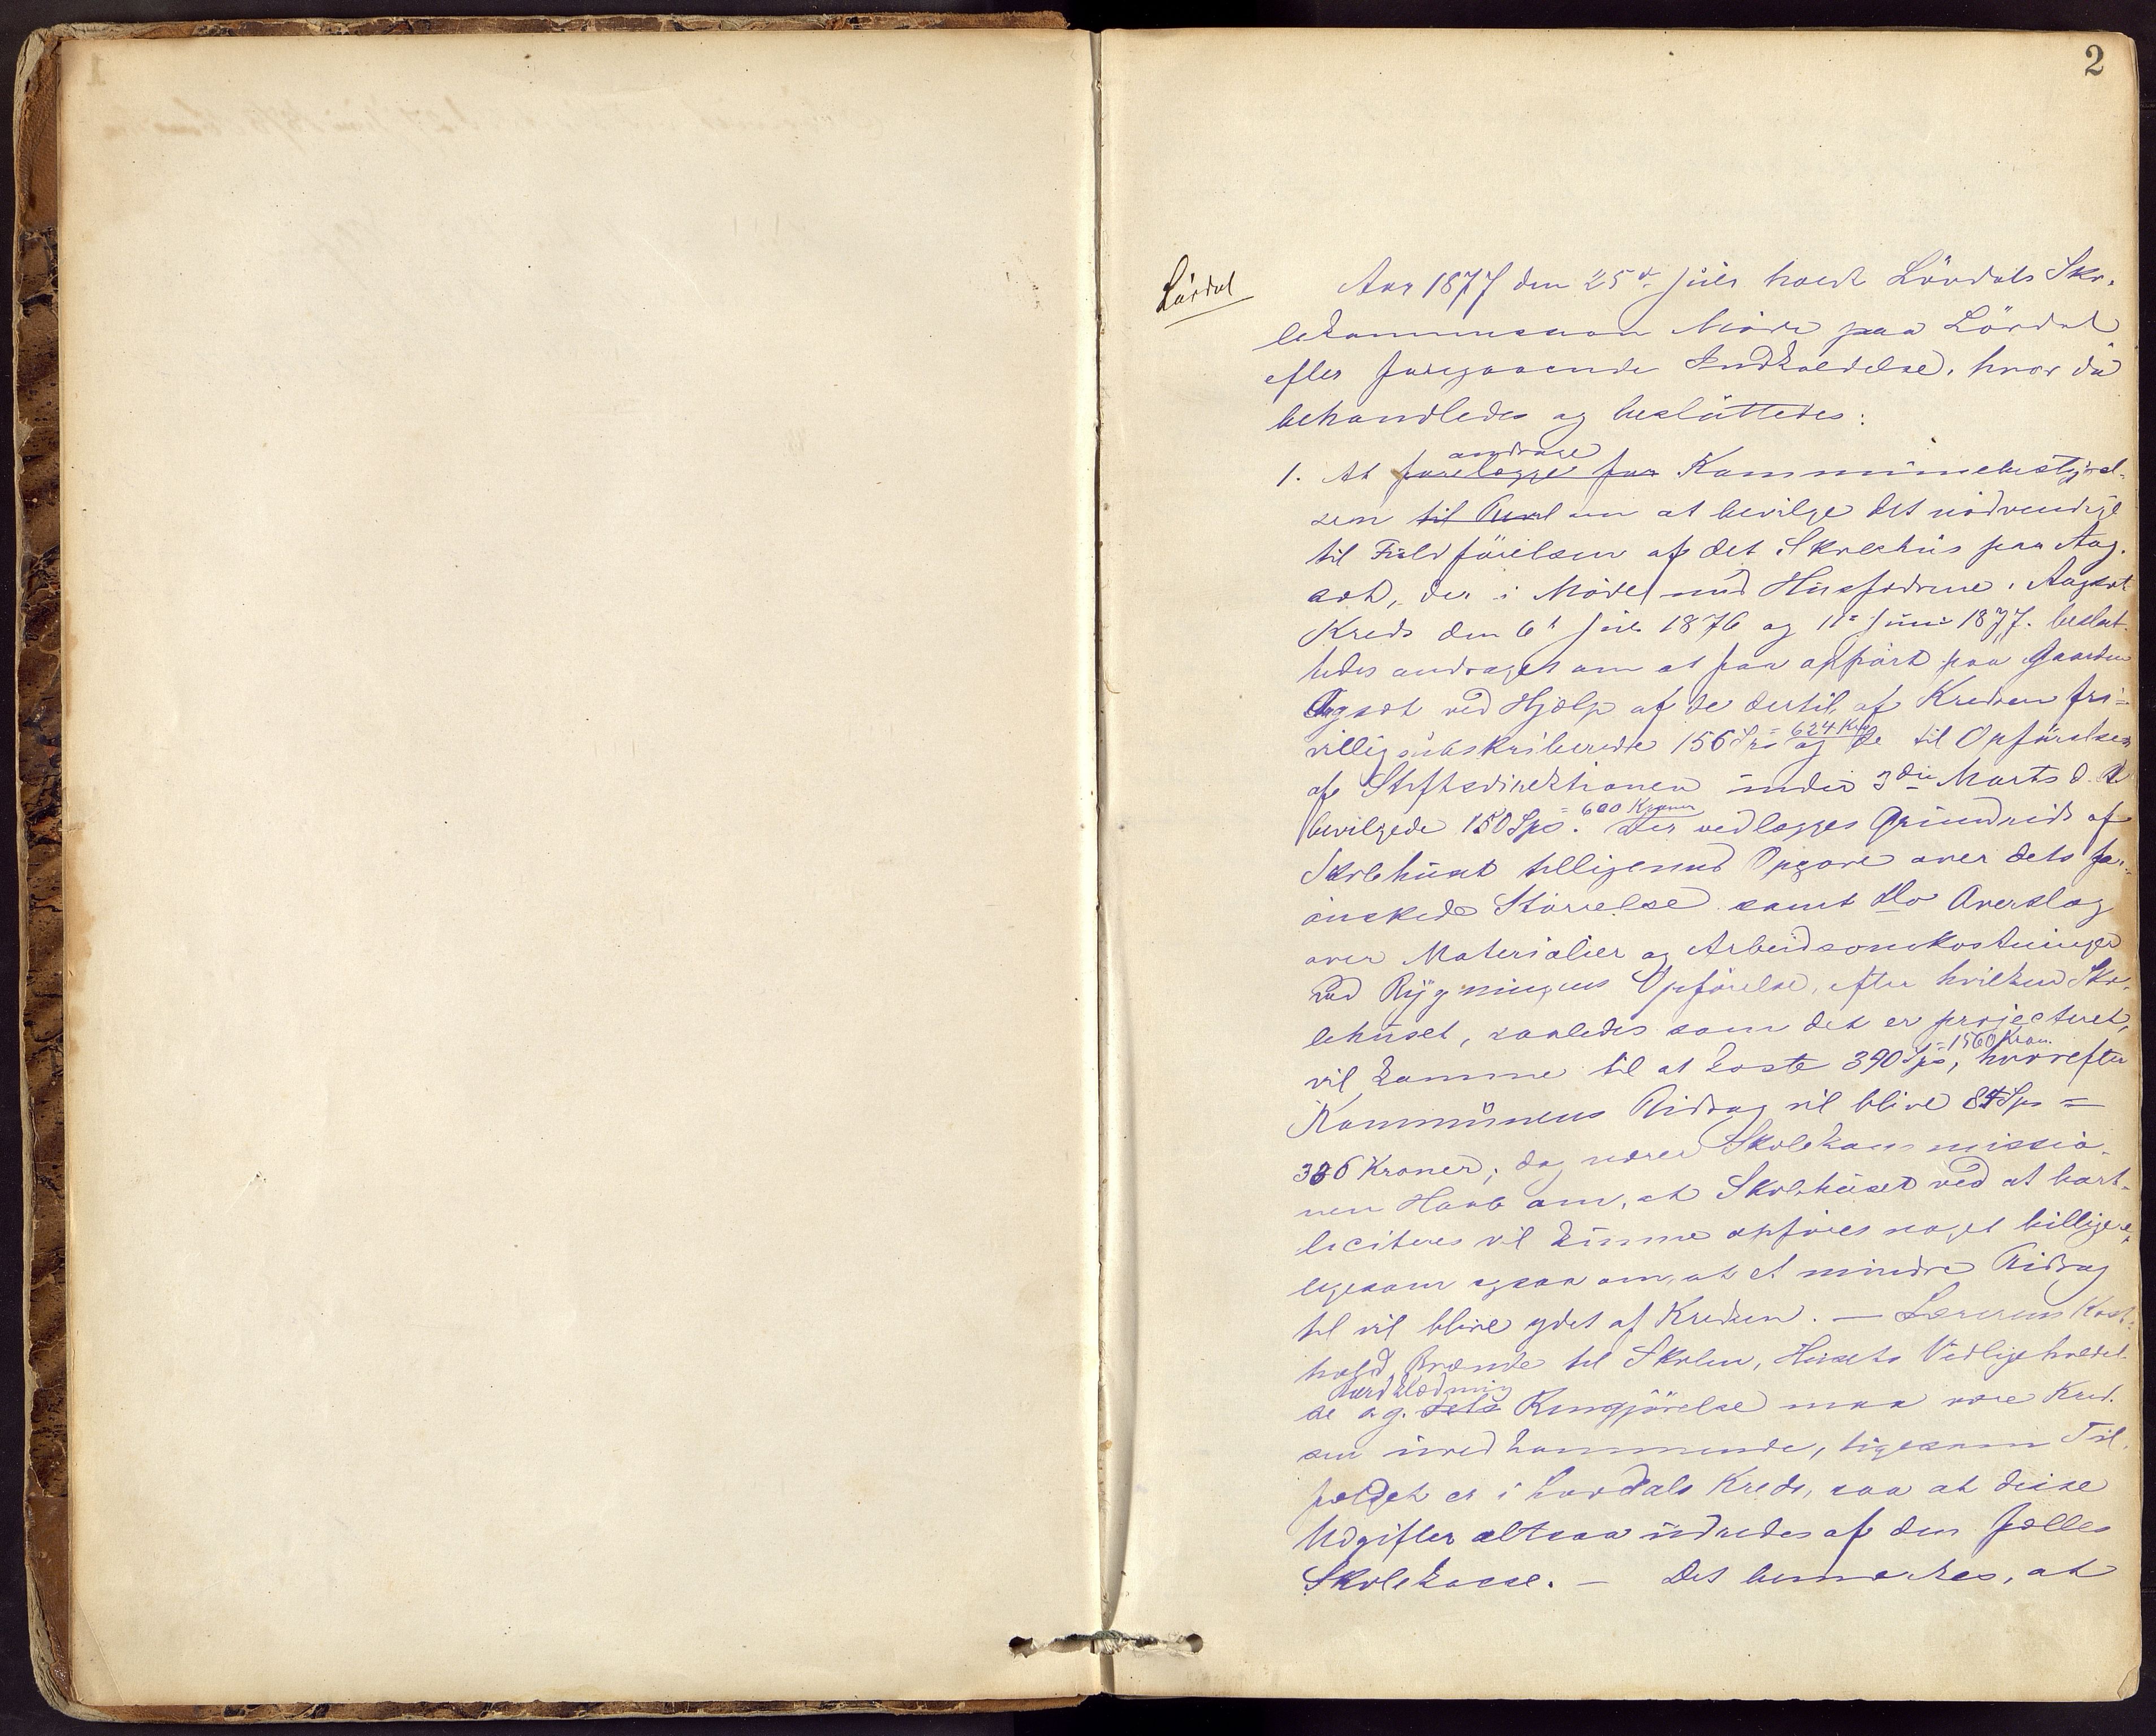 2
Lårdal
Aar 1877 den 25de Juli holdt Lårdals Sko-
lekommission Møde paa Lårdal
efter foregaaende Indkaldelse, hvor da
behandledes og besluttedes:
andrage
1. At forelægge for Kommunebestyrel-
sen til om at bevilge det nødvendige
til Fuldførelsen af det Skolehus paa Aag-
sot, der i Møde med Husfædrene i Aagsot
Kreds den 6te Juli 1876 og 11te Juni 1877 beslut-
tedes andraget om at faa opført paa Gaarden
Aagsot ved Hjælp af de dertil af Kredsen fri-
villig subskriberede 156 Spd = 624 Kr og de til Opførelsen
af Stiftsdirektionen under 3die Marts d. A.
bevilgede 150 Spd. = 600 Kroner Der vedlægges Grundrids af
Skolehuset tilligemed Opgave over dets for-
ønskede Størrelse samt do Overslag
over Materialier og Arbeidsomkostninger
ved Bygningens Opførelse, efter hvilken Sko-
lehuset, saaledes som det er projecteret,
vil komme til at koste 390 Spd = 1560 Kron., hvorefter
Kommunens Bidrag vil blive 84 Spd =
336 Kroner; dog nærer Skolekommissio-
nen Haab om, at Skolehuset ved at bort-
liciteres vil kunne opføres noget billigere,
ligesom ogsaa om, at et mindre Bidrag
til vil blive ydet af Kredsen. — Lærerens Kost-
hold, Brænde til Skolen, Husets Vedligeholdel-
se Bordklædning og dets Rengjørelse maa være Kred-
sen uvedkommende, ligesom Til-
fældet er i Lårdals Kreds, saa at disse
Udgifter altsaa udredes af den fælles
Skolekasse. — Det bemærkes, at